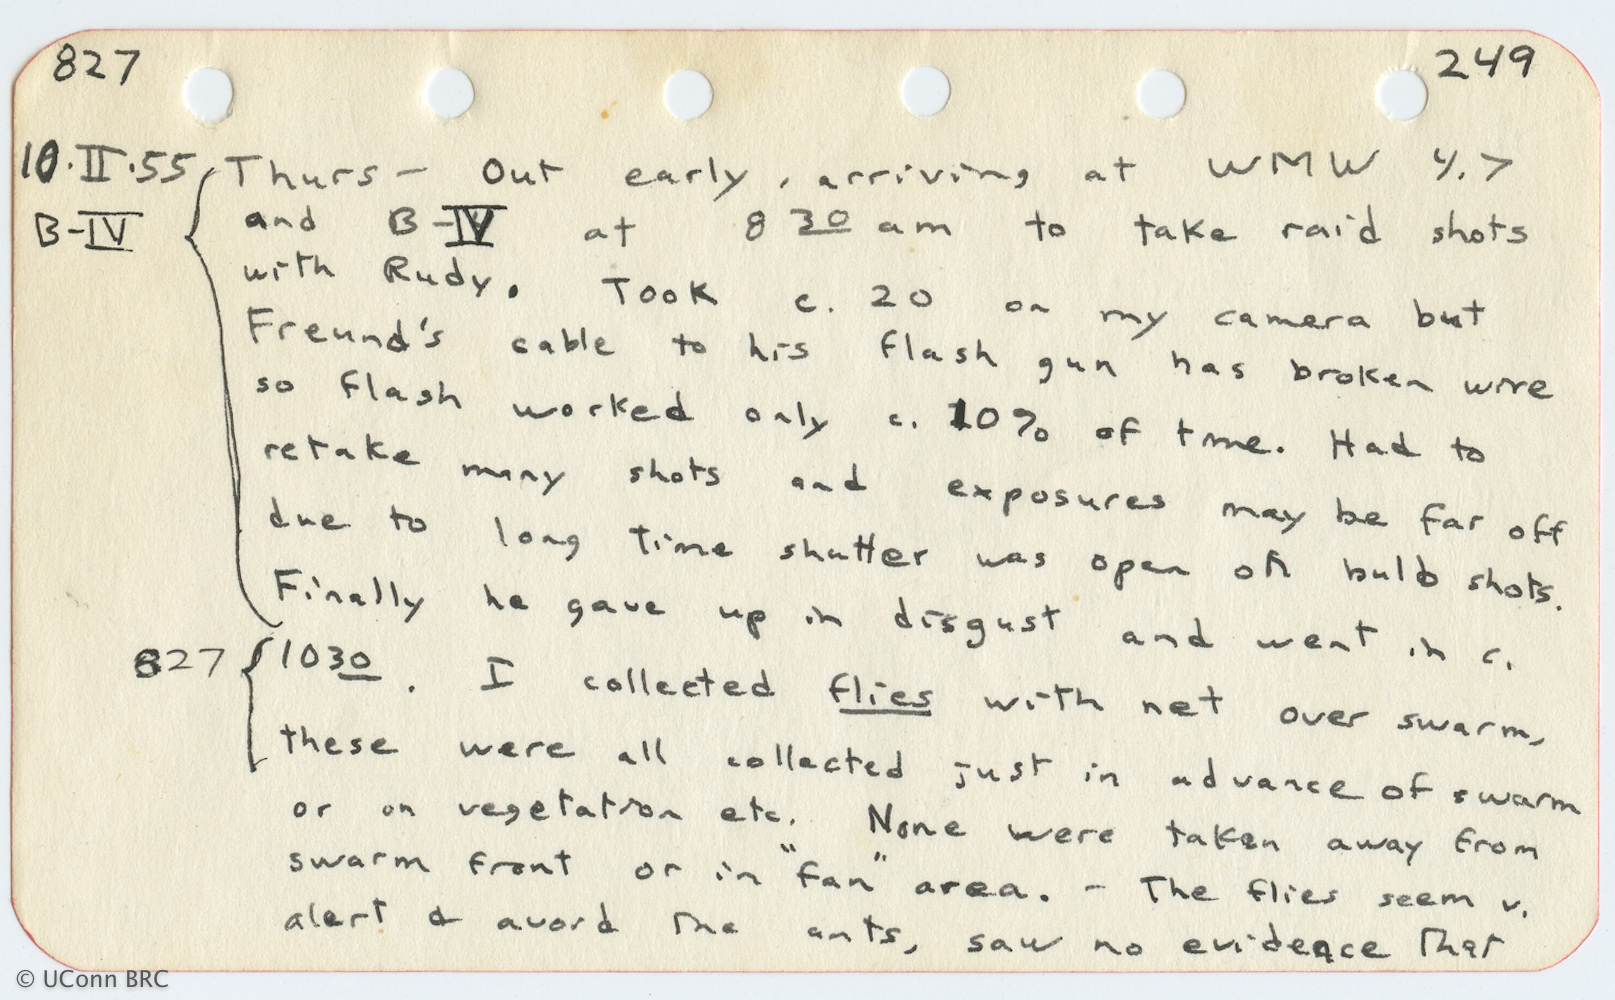 827 249
10.II.55 Thurs – Out early, arriving at WMW 4.7
B-IV and B-IV at 8 30 am to take raid shots
with Rudy. Took c. 20 on my camera but
Freund's cable to his flash gun has broken wire
so flash worked only c. 10% of time. Had to
retake many shots and exposures may be far off
due to long time shutter was open on bulb shots.
Finally he gave up in disgust and went in c.
827 1030. I collected flies with net over swarm,
these were all collected just in advance of swarm
or on vegetation etc. None were taken away from
swarm front or in "fan" area. – The flies seem v.
alert & avoid the ants, saw no evidence that
© UConn BRC